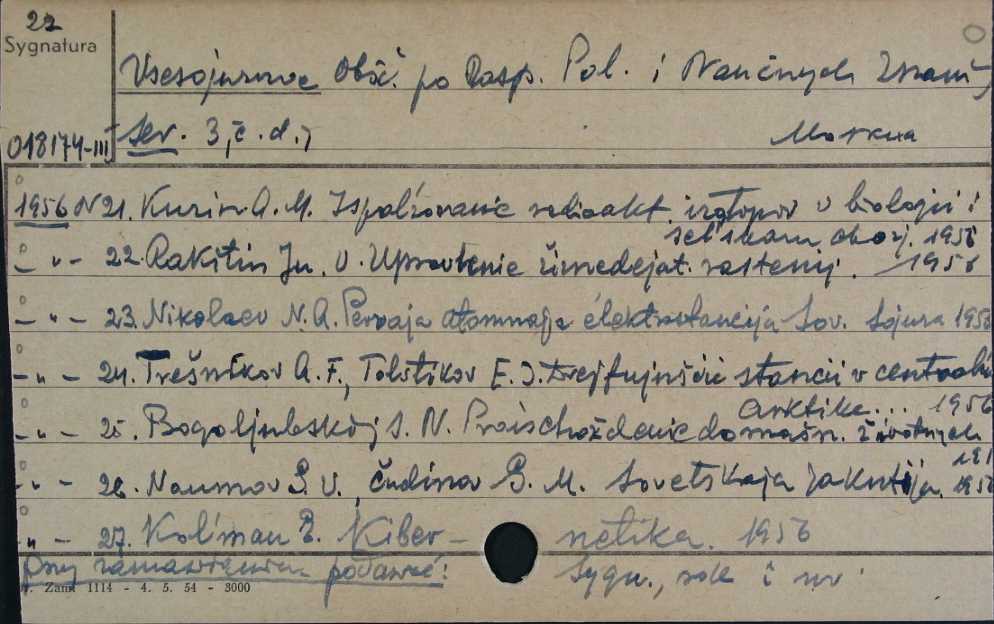 22
Sygnatura
Vsesojuznoe Obšč. po Rasp. Pol. i Naučnych Znanij
018174-III Ser. 3, č. d.,
Moskva
1956 N 21. Kuzin A. M. Ispol'zovanie radioakt. izotopov v biologii i
sel'skom choz. 1956
— " — 22. Rakitin Ju. V. Upravlenie žiznedejat. rastenij. 1956
— " — 23. Nikolaev N. A. Pervaja atomnaja élektrostancija Sov. Sojuza 1956
— " — 24. Trešnikov A. F., Tolstikov E. I. Drejfujuščie stancii v central'n.
Arktike... 1956
— " — 25. Bogoljubskij S. N. Proischoždenie domašn. životnych
— " — 26. Naumov G. V., Čudinov B. M. Sovetskaja Jakutija. 1956
— " — 27. Kol'man E. Kibernetika. 1956
Przy zamawianiu podawać: Sygn., rok i nr
Zam. 1114 - 4. 5. 54 - 3000